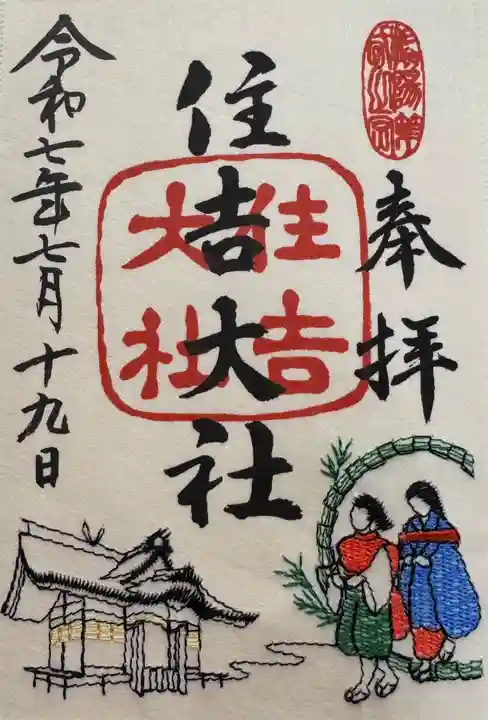 奉拝
住吉大社
住吉
大社
令和七年七月十九日